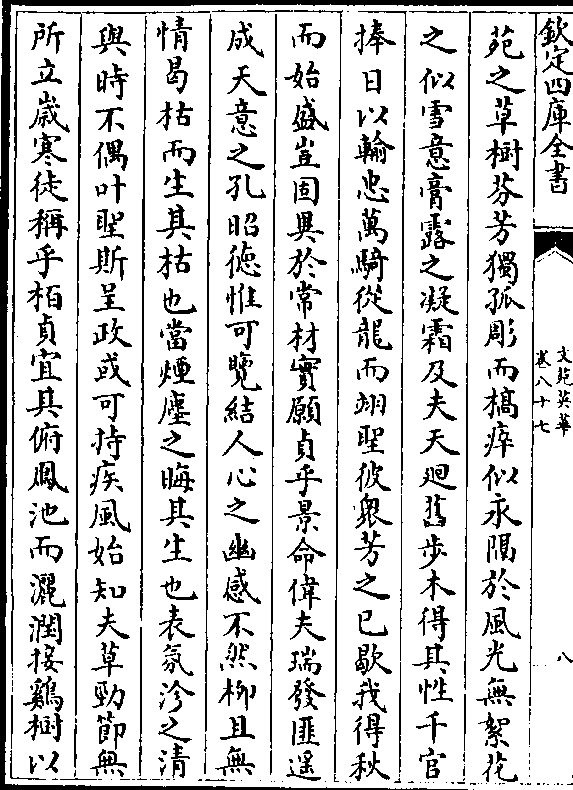 欽定四庫全書
文苑英華
卷八十七
八
苑之草樹芬芳獨孤彫而槁瘁似永隔於風光無絮花
之似雪意膏露之凝霜及夫天迴舊步木得其性千官
捧日以輸忠萬騎從龍而翊聖彼衆芳之已歇我得秋
而始盛豈固異於常材實願貞乎景命偉夫瑞發匪遥
成天意之孔昭德惟可覽結人心之幽感不然柳且無
情曷枯而生其枯也當煙塵之晦其生也表氛沴之清
與時不偶叶聖斯呈政或可持疾風始知夫草勁節無
所立歲寒徒稱乎柏貞宜其俯鳳池而灑潤接鷄樹以